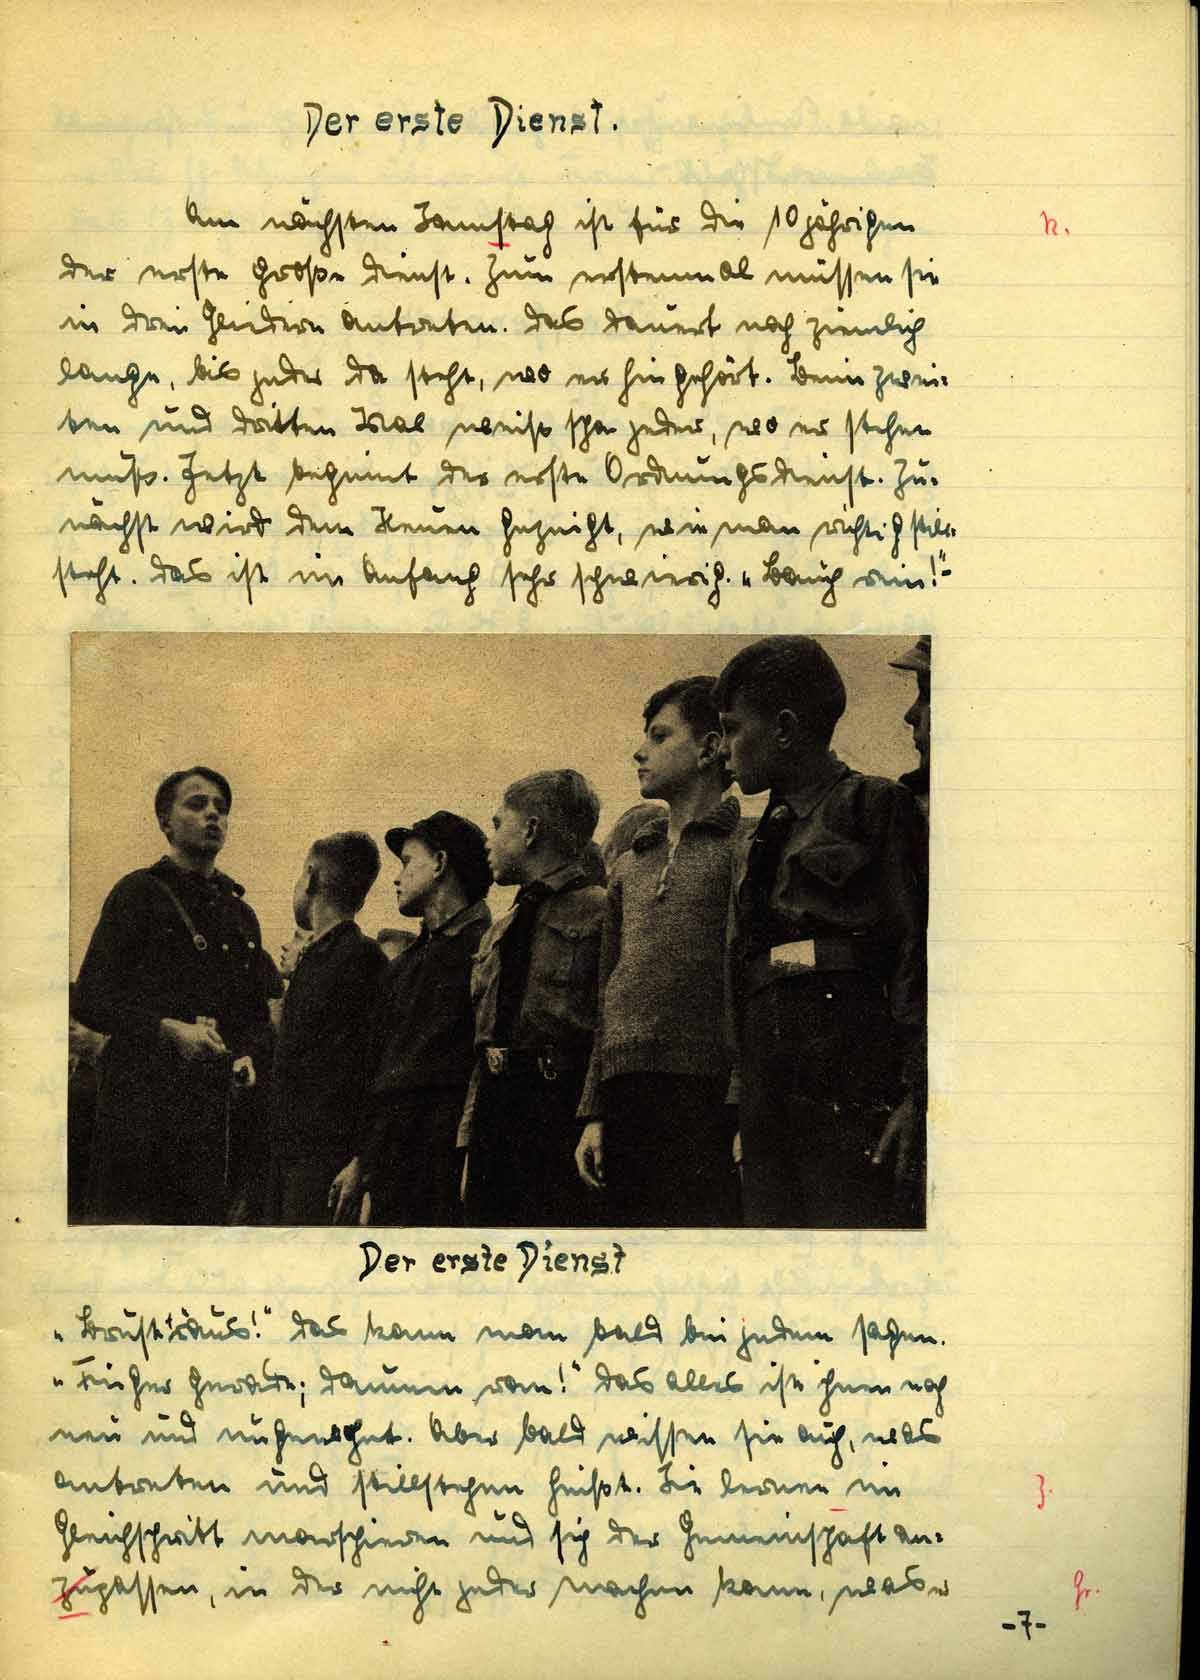 Der erste Dienst.
Am nächsten Samstag ist für die 10 jährigen
der erste große Dienst. Zum erstenmal müssen sie
in drei Gliedern antreten. Das dauert noch ziemlich
lange, bis jeder da steht, wo er hingehört. Beim zwei-
ten und dritten Mal weiß schon jeder, wo er stehen
muß. Jetzt beginnt der erste Ordnungsdienst. Zu-
nächst wird den Neuen gezeigt, wie man richtig still-
steht. Das ist im Anfang sehr schwierig. „Bauch rein!“-
Der erste Dienst
„Brust 'raus!“ Das kann man bald bei jedem sagen.
„Finger gerade; Daumen ran!“ Das alles ist ihnen noch
neu und ungewohnt. Aber bald wissen sie auch, was
antreten und stillstehen heißt. Sie lernen im
Gleichschritt marschieren und sich der Gemeinschaft an-
zupassen, in der nicht jeder machen kann, was er
-7-